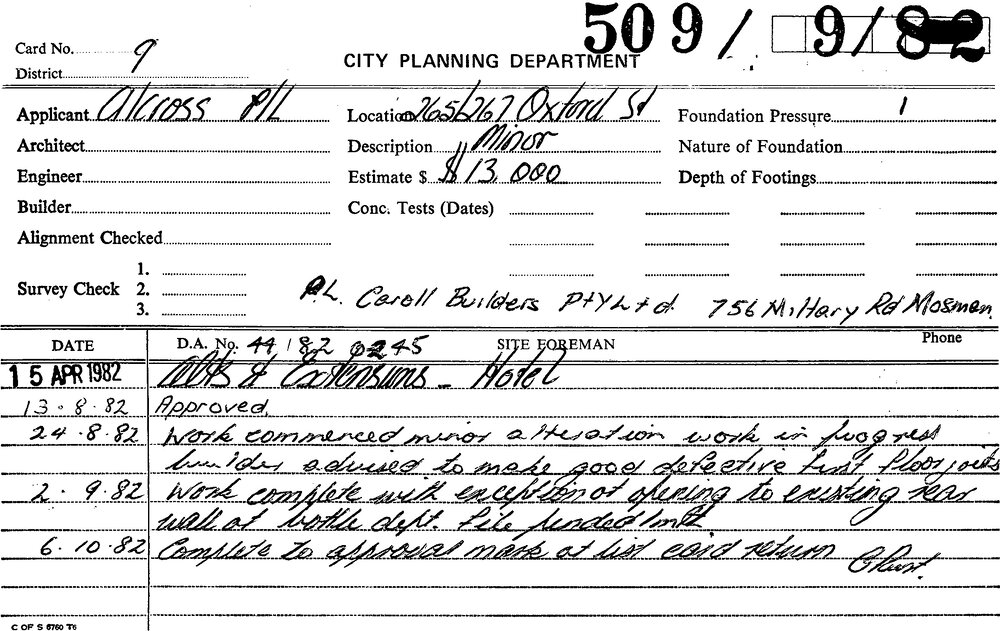 509/ 9/82
Card No. 9
District
CITY PLANNING DEPARTMENT
Applicant Alcross P/L Location 265/267 Oxford St Foundation Pressure
Architect Description Minor Nature of Foundation
Engineer Estimate $ $13,000 Depth of Footings
Builder Conc. Tests (Dates)
Alignment Checked
1.
Survey Check 2.
3.
P.L. Caroll Builders Pty Ltd. 756 Military Rd Mosman.
DATE D.A. No. 44/82 0245 SITE FOREMAN Phone
15 APR 1982 Alts & Extensions - Hotel
13.8.82 Approved.
24.8.82 Work commenced minor alteration work in progress
builder advised to make good defective first floor joists
2.9.82 Work complete with exception of opening to existing rear
wall at bottle dept. File pended
6.10.82 Complete to approval mark at list card return
C OF S 6760 T6